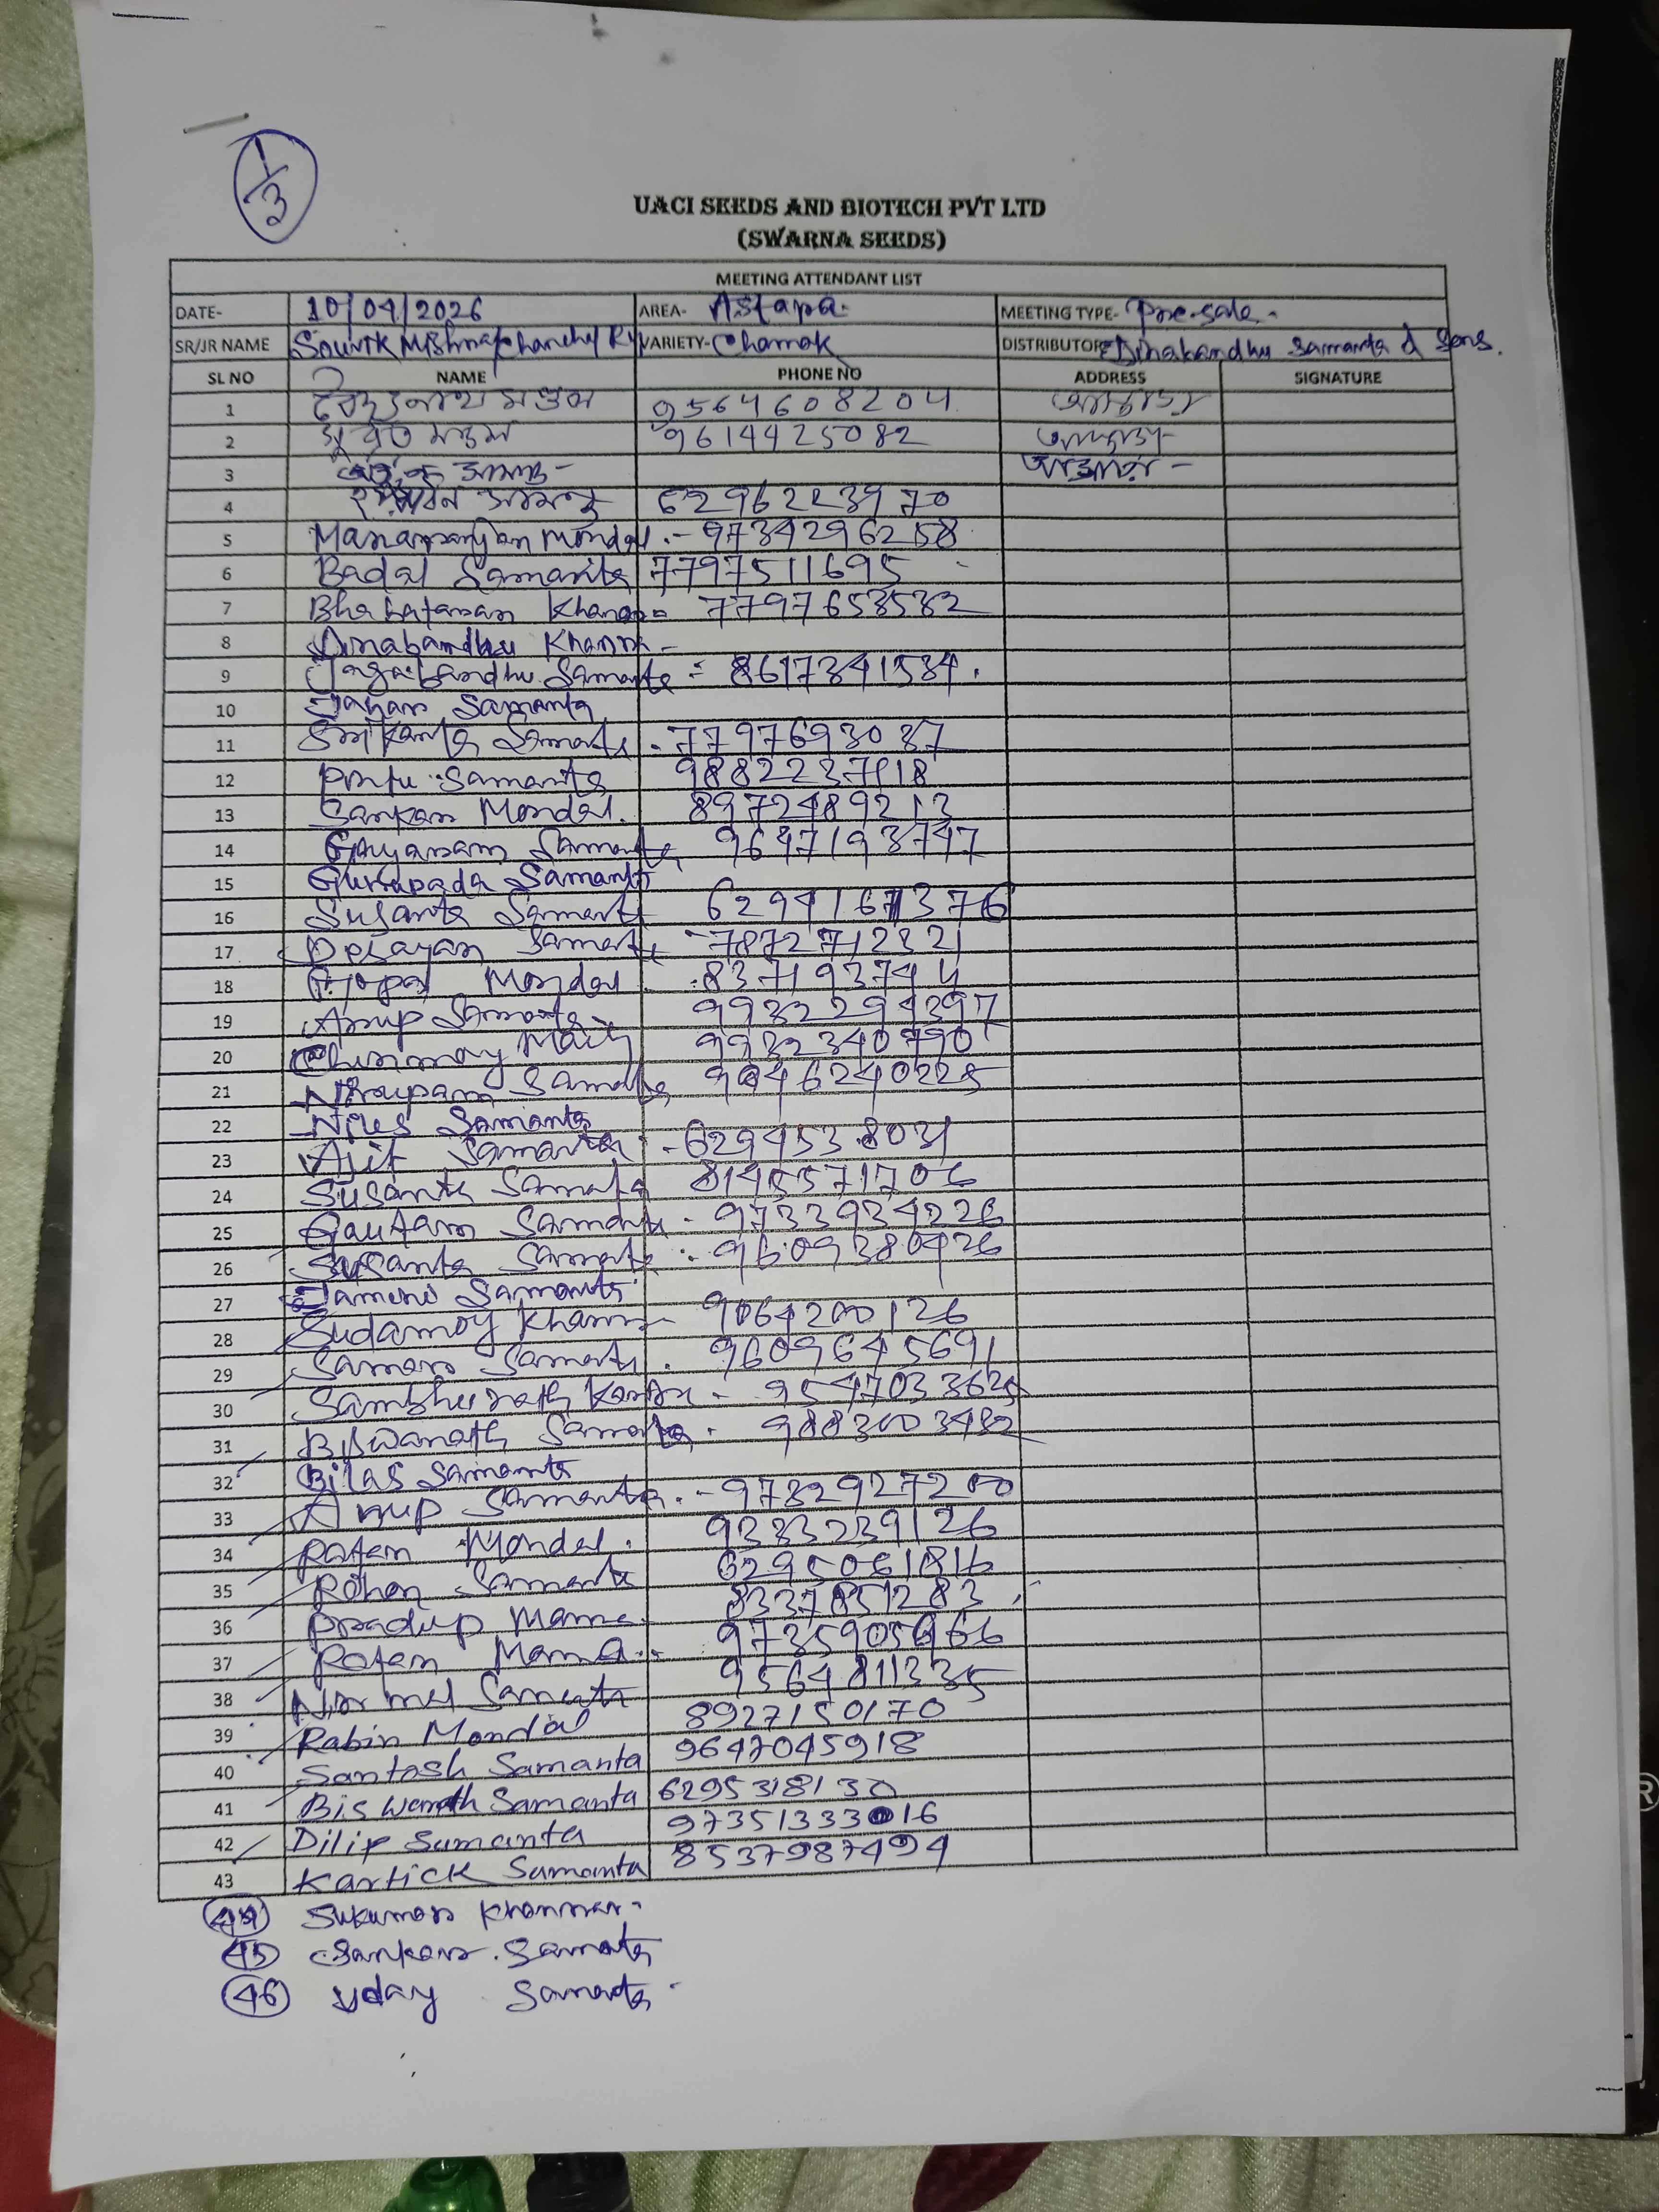 1/3
UACI SEEDS AND BIOTECH PVT LTD
(SWARNA SEEDS)
MEETING ATTENDANT LIST
DATE- 10/04/2026 AREA- Astara. MEETING TYPE- Pre-sale.
SR/JR NAME VARIETY- Chamak DISTRIBUTOR- Dinabandhu Samanta & Sons.
SL NO NAME PHONE NO ADDRESS SIGNATURE
1 9564608204
2 সুব্রত মন্ডল 9614425082
3 সামন্ত-
4 সামন্ত 6296223970
5 Manaranjan Mondal .- 9734296258
6 Badal Samanta 7797511695
7 Bhabataran Khanra= 7797658582
8 Dinabandhu Khanra-
9 Jagabandhu Samanta = 8617341534.
10 Samanta
11 Srikanta Samanta - 7797693037
12 Samanta 9882237118
13 Sankar Mondal. 8972489213
14 Samanta 9647193747
15 Gurupada Samanta
16 Susanta Samanta
17 Samanta 7872712321
18 Gopal Mondal 8371937944
19 Anup Samanta 9932294397
20 Chinmay Maity 9932340790
21 Nirupam Samanta 9046240225
22 Samanta
23 Ajit Samanta - 629453.8031
24 Susanta Samanta
25 Gautam Samanta - 9733934226
26 Susanta Samanta : 9609380426
27 Samanta
28 Sudamoy Khanra 9064200126
29 Samar Samanta . 9609645691
30 Sambhunath Kanrar - 9547033625
31 Biswanath Samanta . 9883003482
32 Bilas Samanta
33 Anup Samanta. - 9732927200
34 Ratan Mondal. 9383239126
35 Rohan Samanta 6295061816
36 Pradip Manna. 8337851283
37 Ratan Manna.. 9735905966
38 Nirmal Samanta 9564811335
39 Rabin Mondal 8927150170
40 Santosh Samanta 9647045918
41 Biswanath Samanta 6295318130
42 Dilip Samanta 97351333016
43 Kartick Samanta 8537987494
44 Sukumar Khanrar-
45 Sankar. Samanta
46 Uday Samanta.